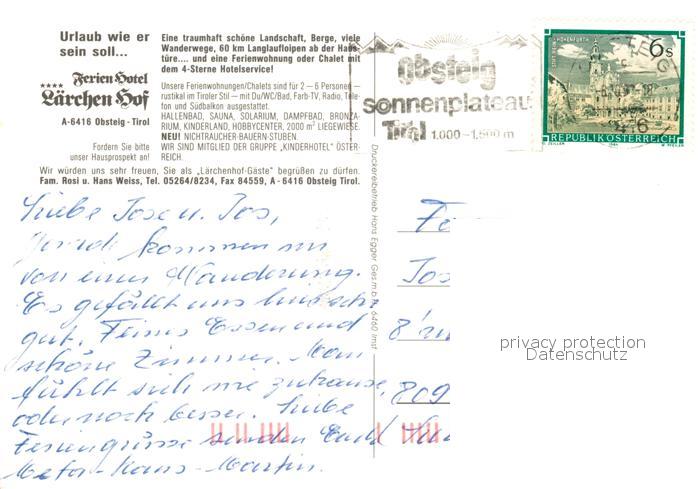 Urlaub wie er
sein soll...
Ferien Hotel
Lärchen Hof
A-6416 Obsteig - Tirol
Fordern Sie bitte
unser Hausprospekt an!
Eine traumhaft schöne Landschaft, Berge, viele
Wanderwege, 60 km Langlaufloipen ab der Haus-
türe.... und eine Ferienwohnung oder Chalet mit
dem 4-Sterne Hotelservice!
Unsere Ferienwohnungen/Chalets sind für 2 – 6 Personen –
rustikal im Tiroler Stil – mit Du/WC/Bad, Farb-TV, Radio, Tele-
fon und Südbalkon ausgestattet.
HALLENBAD, SAUNA, SOLARIUM, DAMPFBAD, BRONZA-
RIUM, KINDERLAND, HOBBYCENTER, 2000 m² LIEGEWIESE.
NEU! NICHTRAUCHER BAUERN-STUBEN.
WIR SIND MITGLIED DER GRUPPE „KINDERHOTEL" ÖSTER-
REICH.
Wir würden uns sehr freuen, Sie als „Lärchenhof-Gäste" begrüßen zu dürfen.
Fam. Rosi u. Hans Weiss, Tel. 05264/8234, Fax 84559, A-6416 Obsteig Tirol.
Obsteig
sonnenplateau
Tirol 1.000-1.500 m
STIFT REIN-HOHENFURTH
6 S
REPUBLIK ÖSTERREICH
Druckereibetrieb Hans Egger Ges.m.b.H., 6460 Imst
Liebe Jose u. Jos,
Gerade kommen wir
von einer Wanderung.
Es gefällt uns hier sehr
gut. Feines Essen und
schöne Zimmer. Man
fühlt sich wie zuhause,
oder noch besser. Liebe
Feriengrüsse senden Euch
Meta-Hans-Martin.
Fa
Jos
809
privacy protection
Datenschutz